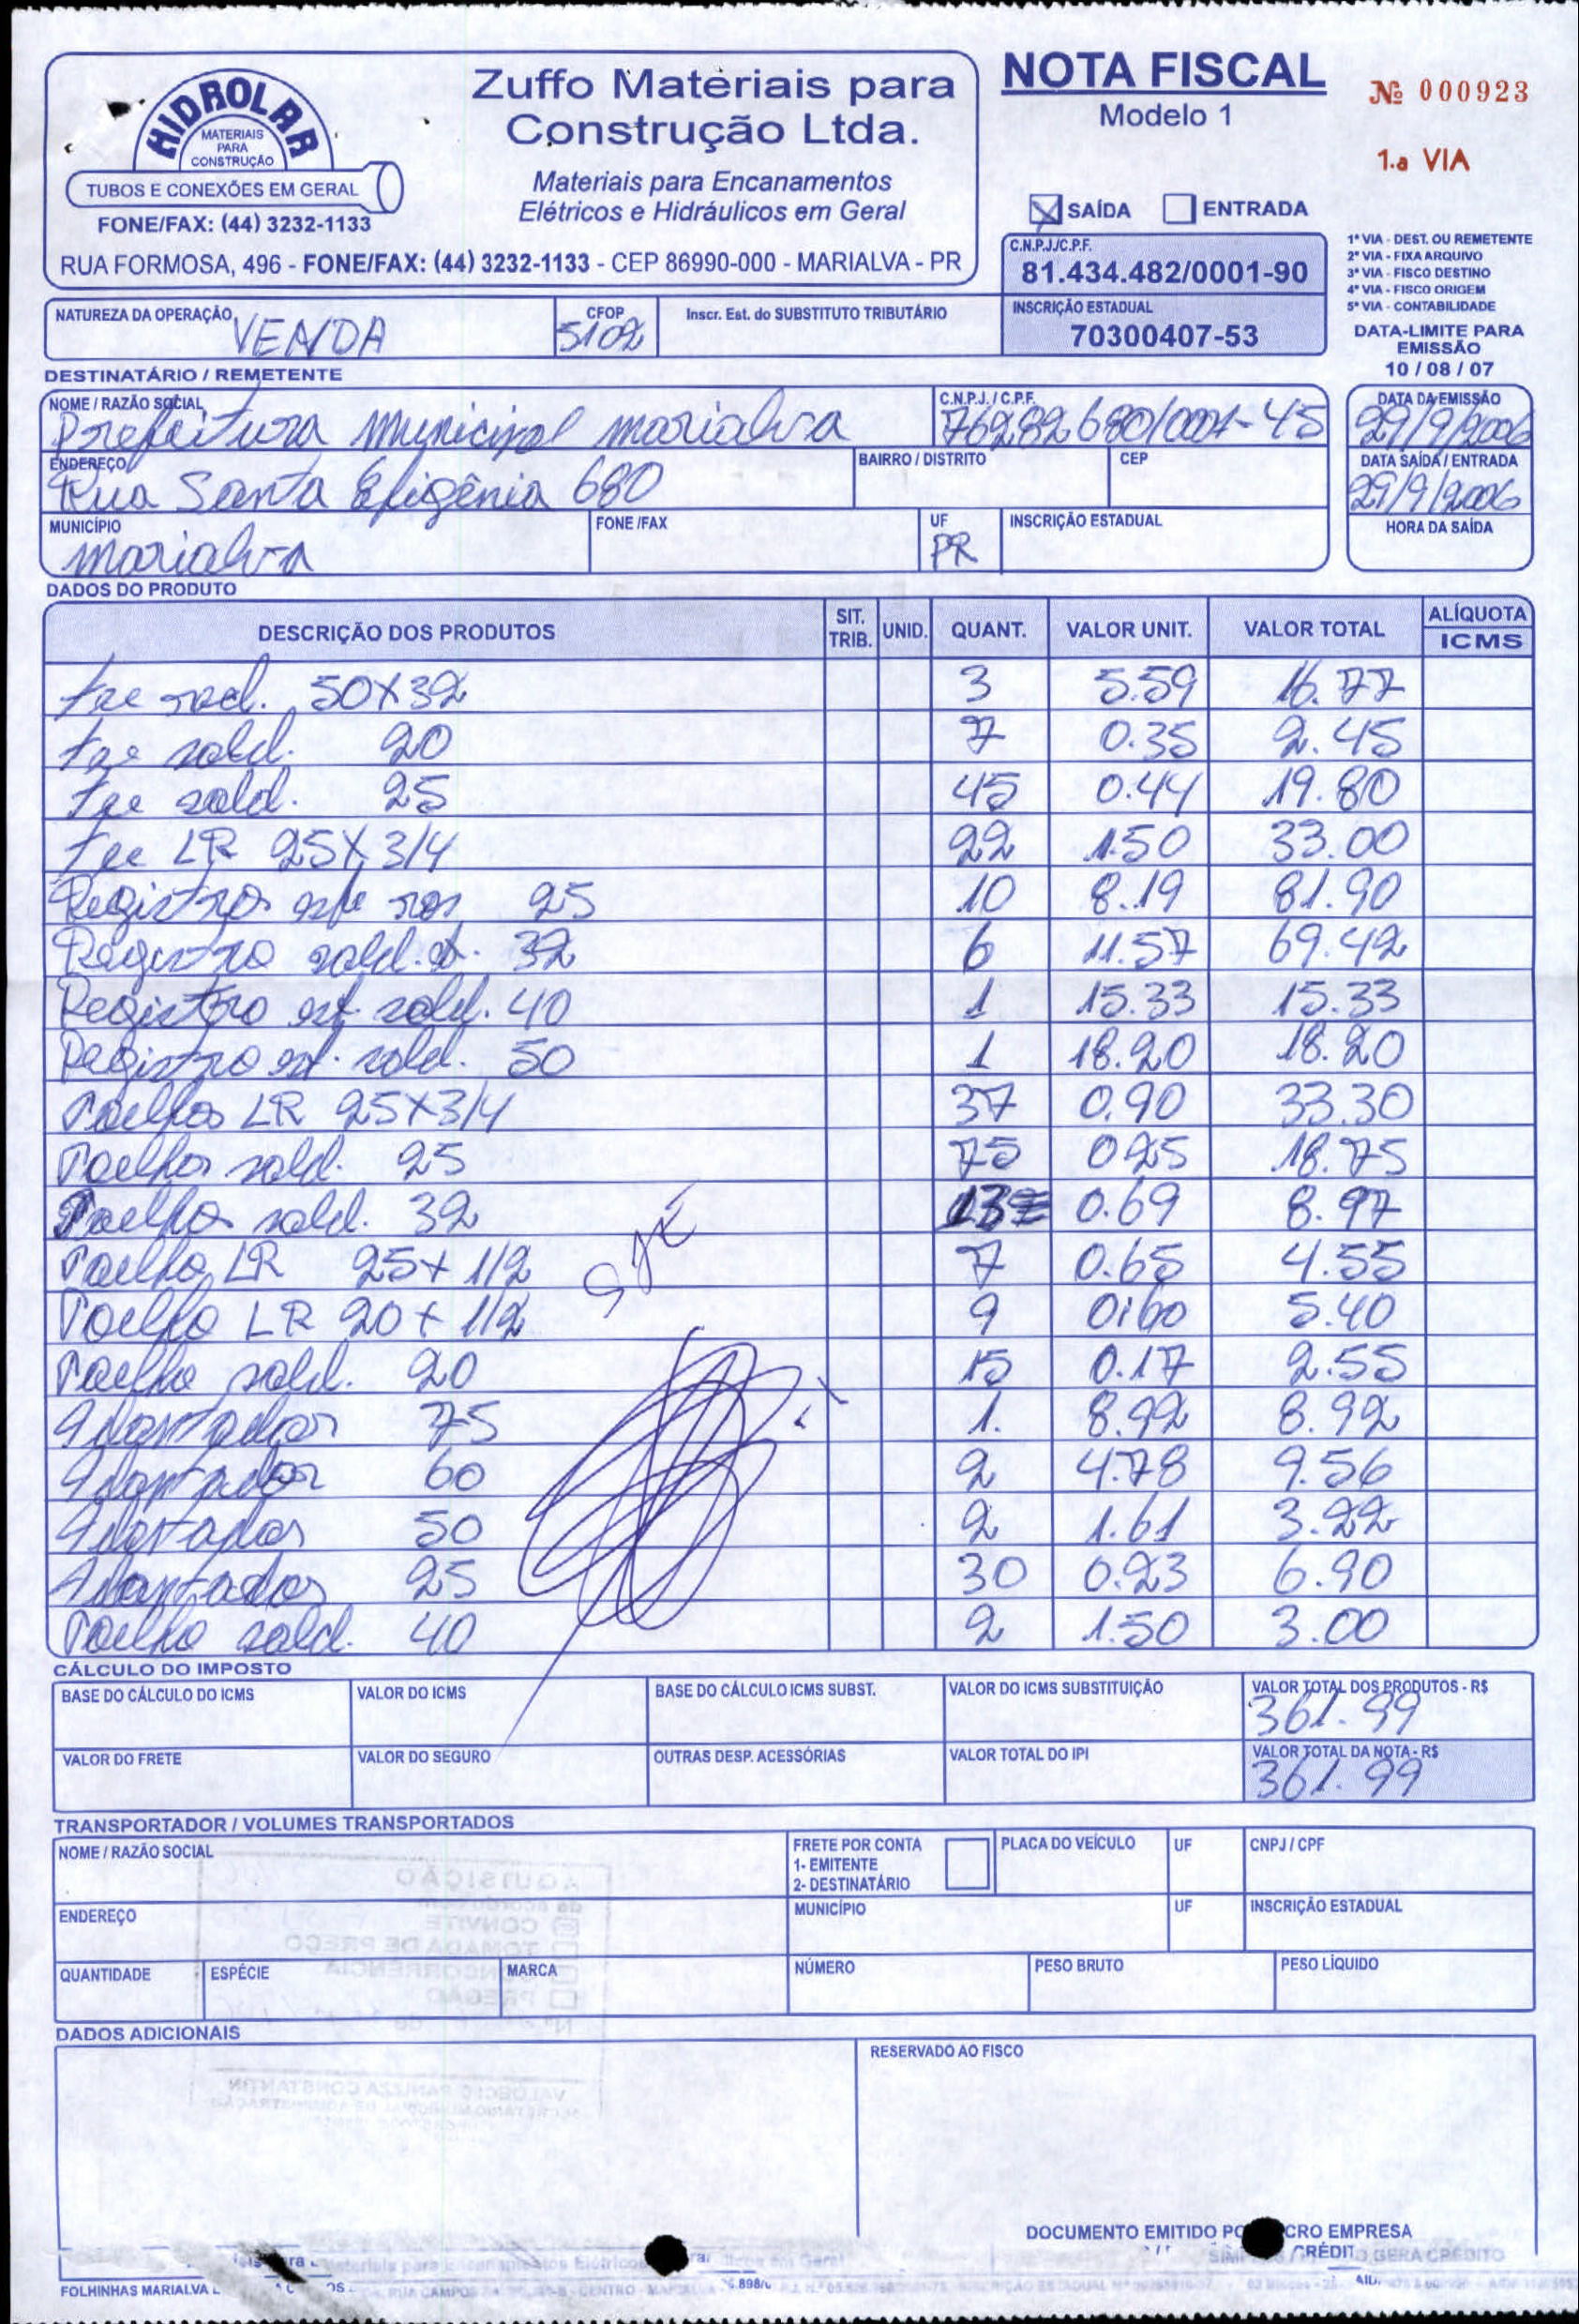 HIDROLAR
MATERIAIS
PARA
CONSTRUÇÃO
TUBOS E CONEXÕES EM GERAL
FONE/FAX: (44) 3232-1133
Zuffo Materiais para
Construção Ltda.
Materiais para Encanamentos
Elétricos e Hidráulicos em Geral
RUA FORMOSA, 496 - FONE/FAX: (44) 3232-1133 - CEP 86990-000 - MARIALVA - PR
NOTA FISCAL
Modelo 1
Nº 000923
1.a VIA
X SAÍDA ENTRADA
C.N.P.J./C.P.F.
81.434.482/0001-90
INSCRIÇÃO ESTADUAL
70300407-53
1ª VIA - DEST. OU REMETENTE
2ª VIA - FIXA ARQUIVO
3ª VIA - FISCO DESTINO
4ª VIA - FISCO ORIGEM
5ª VIA - CONTABILIDADE
DATA-LIMITE PARA
EMISSÃO
10 / 08 / 07
NATUREZA DA OPERAÇÃO VENDA
CFOP 5102
Inscr. Est. do SUBSTITUTO TRIBUTÁRIO
DESTINATÁRIO / REMETENTE
NOME / RAZÃO SOCIAL
Prefeitura Municipal Marialva
C.N.P.J. / C.P.F.
76282680/0001-45
DATA DA EMISSÃO
29/9/2006
ENDEREÇO
Rua Santa Efigênia 680
BAIRRO / DISTRITO
CEP
DATA SAÍDA / ENTRADA
29/9/2006
MUNICÍPIO
Marialva
FONE /FAX
UF
PR
INSCRIÇÃO ESTADUAL
HORA DA SAÍDA
DADOS DO PRODUTO
DESCRIÇÃO DOS PRODUTOS SIT. TRIB. UNID. QUANT. VALOR UNIT. VALOR TOTAL ALÍQUOTA ICMS
Tee sold. 50X32 3 5.59 16.77
Tee sold. 20 7 0.35 2.45
Tee sold. 25 45 0.44 19.80
Tee LR 25X3/4 22 1.50 33.00
Registro 25 10 8.19 81.90
Registro sold. 32 6 11.57 69.42
Registro est. sold. 40 1 15.33 15.33
Registro est. sold. 50 1 18.20 18.20
Joelho LR 25X3/4 37 0.90 33.30
Joelho sold. 25 75 0.25 18.75
Joelho sold. 32 13 0.69 8.97
Joelho LR 25x1/2 7 0.65 4.55
Joelho LR 20x1/2 9 0.60 5.40
Joelho sold. 20 15 0.17 2.55
Adaptador 75 1. 8.92 8.92
Adaptador 60 2 4.78 9.56
Adaptador 50 2 1.61 3.22
Adaptador 25 30 0.23 6.90
Joelho sold. 40 2 1.50 3.00
CÁLCULO DO IMPOSTO
BASE DO CÁLCULO DO ICMS
VALOR DO ICMS
BASE DO CÁLCULO ICMS SUBST.
VALOR DO ICMS SUBSTITUIÇÃO
VALOR TOTAL DOS PRODUTOS - R$
361.99
VALOR DO FRETE
VALOR DO SEGURO
OUTRAS DESP. ACESSÓRIAS
VALOR TOTAL DO IPI
VALOR TOTAL DA NOTA - R$
361.99
TRANSPORTADOR / VOLUMES TRANSPORTADOS
NOME / RAZÃO SOCIAL
FRETE POR CONTA
1- EMITENTE
2- DESTINATÁRIO
PLACA DO VEÍCULO
UF
CNPJ / CPF
ENDEREÇO
MUNICÍPIO
UF
INSCRIÇÃO ESTADUAL
QUANTIDADE
ESPÉCIE
MARCA
NÚMERO
PESO BRUTO
PESO LÍQUIDO
DADOS ADICIONAIS
RESERVADO AO FISCO
DOCUMENTO EMITIDO CRO EMPRESA
CRÉDIT
FOLHINHAS MARIALVA